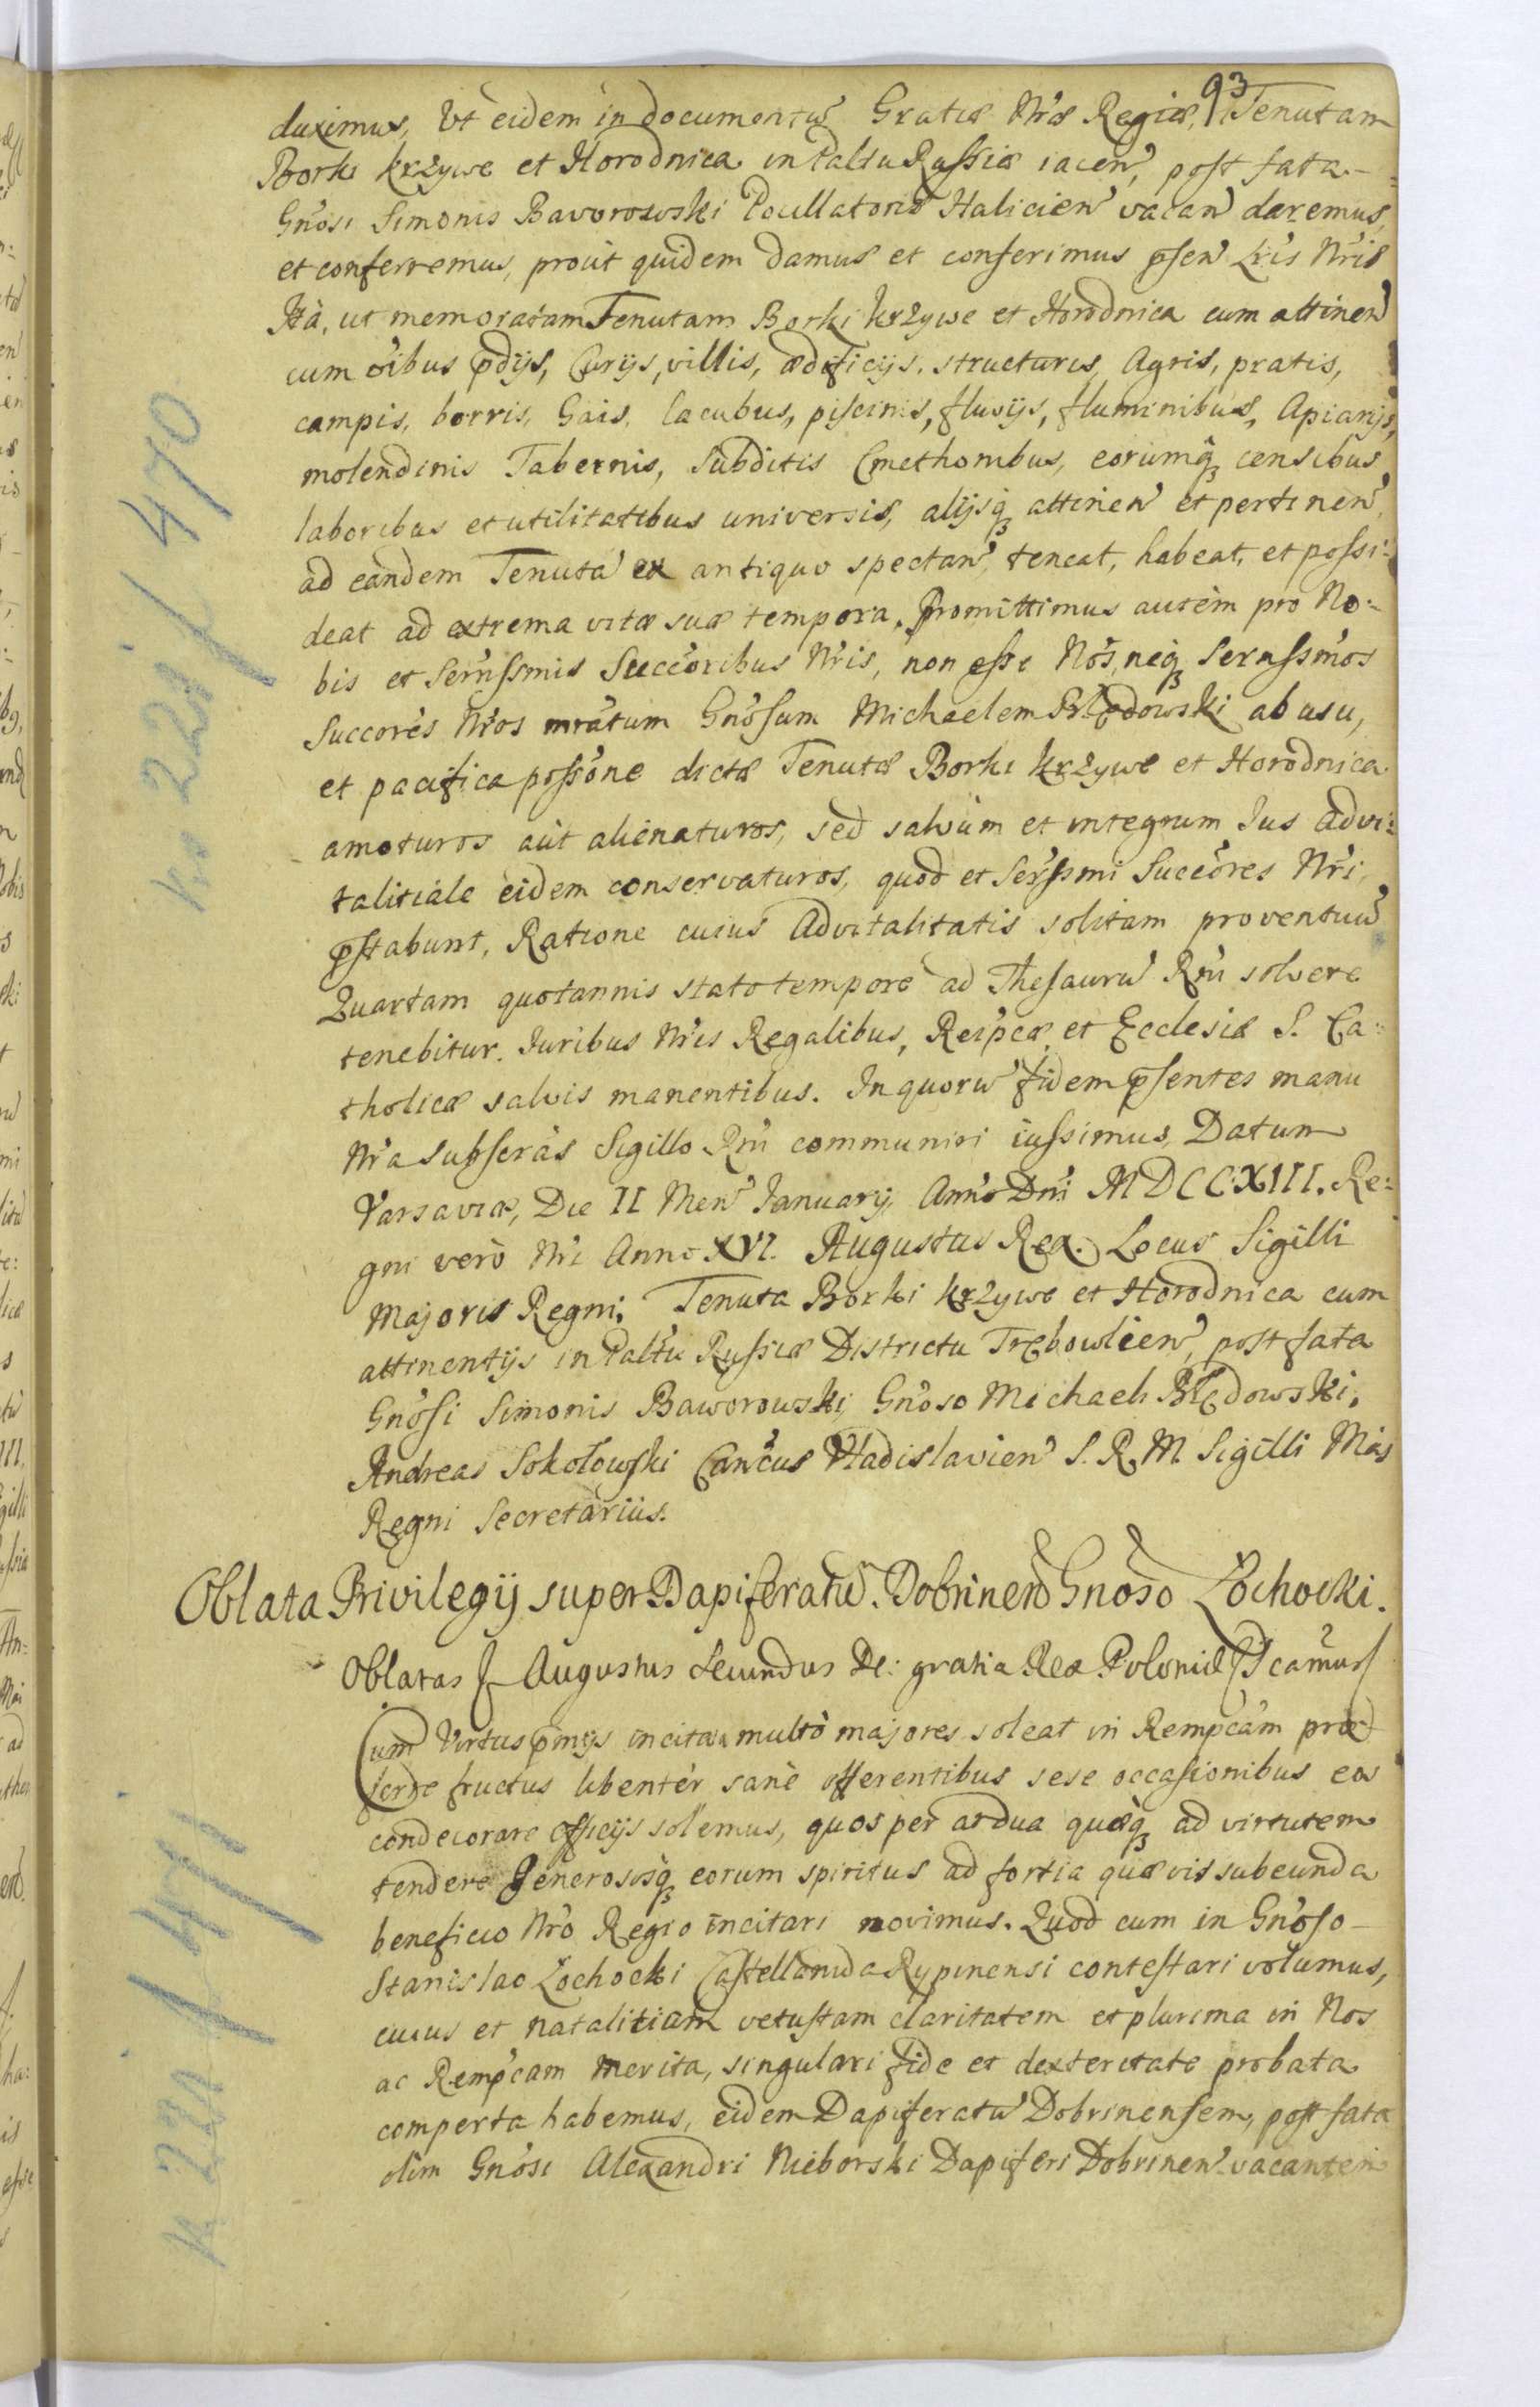 93
duximus, Ut eidem in documentũ Gratiæ Nr̃æ Regiæ, Tenutam
Borki krzywe et Horodnica in Paltu Russiæ iaceñ, post fata
Gnõsi Simonis Baworowski Pocillatoris Halicieñ vacañ daremus,
et conferremus, proùt quidem damus et conferimus p̃señ Lr̃is Nr̃is
Ità, ut memoratam Tenutam Borki krzywe et Horodnica cum attineñ
cum õibus p̃dijs, Curijs, villis, ædificijs, structuris, Agris, pratis,
campis, borris, Gais, lacubus, piscinis, fluvijs, fluminibus, Apiarijs,
molendinis Tabernis, Subditis Cmethonibus, eorumq́ꝫ censibus
laboribus et utilitatibus universis, alijsq́ꝫ attineñ et pertineñ,
ad eandem Tenutã ex antiquo spectañ, teneat, habeat, et possi:
deat ad extrema vitæ suæ tempora. Promittimus autèm pro No:
bis et Serñssmis Succõribus Nr̃is, non esse Nos, neq́ꝫ Serñssmos
Succorẽs Nr̃os mrãtum Gnõsum Michaelem Błędowski ab usu,
et pacifica possõne dictæ Tenutæ Borki krzywe et Horodnica
amoturos aùt alienaturos, sed salvùm et integrum Jus Advi:
talitiale eidem conservaturos, quod et Serñssmi Succõres Nr̃i,
p̃stabunt, Ratione cuius Advitalitatis solitam proventuũ
Quartam quotannis stato tempore ad Thesaurũ Rñi solvere
tenebitur. Juribus Nr̃is Regalibus, Reip̃cæ, et Ecclesiæ S. Ca:
tholicæ salvis manentibus. In quorũ fidem p̃sentes manu
Nr̃a subscr̃as Sigillo Rñi communiri iussimus, Datum
Varsaviæ, Die II Meñ January, Anno Dñi MDCCXIII. Re:
gni verò Nr̃i Anno XVI. Augustus Rex. Locus Sigilli
Majoris Regni. Tenuta Borki krzywe et Horodnica cum
attinentijs in Paltu Russiæ Districtu Trębowlieñ, post fata
Gnõsi Simonis Baworowski, Gnõso Michaeli Błędowski.
Andreas Sokołowski Cancus Wladislavieñ S. R. M. Sigilli Mais
Regni Secretarius.
Oblata Privilegij super Dapiferatũ Dobrineñ Gnõso Łochocki.
Oblatas Augustus Secundus D: gratia Rex Poloniæ
Cum Virtus p̃mijs incitata multò majores soleat in Remp̃cam præ
ferre fructus libentèr sanè offerentibus sese occasionibus eos
condecorare officijs solemus, quos per ardua quæq́ꝫ ad virtutem
tendere Generososq́ꝫ eorum spiritus ad fortia quævis subeunda
beneficio Nr̃o Regio incitari novimus. Quod cum in Gnõso
Stanislao Łochocki Castellanida Rypinensi contestari volumus,
cuius et natalitiam vetustam claritatem et plurima in Nos
ac Remp̃cam merita, singulari fide et dexteritate probata
comperta habemus, eidem Dapiferatũ Dobrinensem, post fata
olim Gnõsi Alexandri Nieborski Dapiferi Dobrineñ vacantem